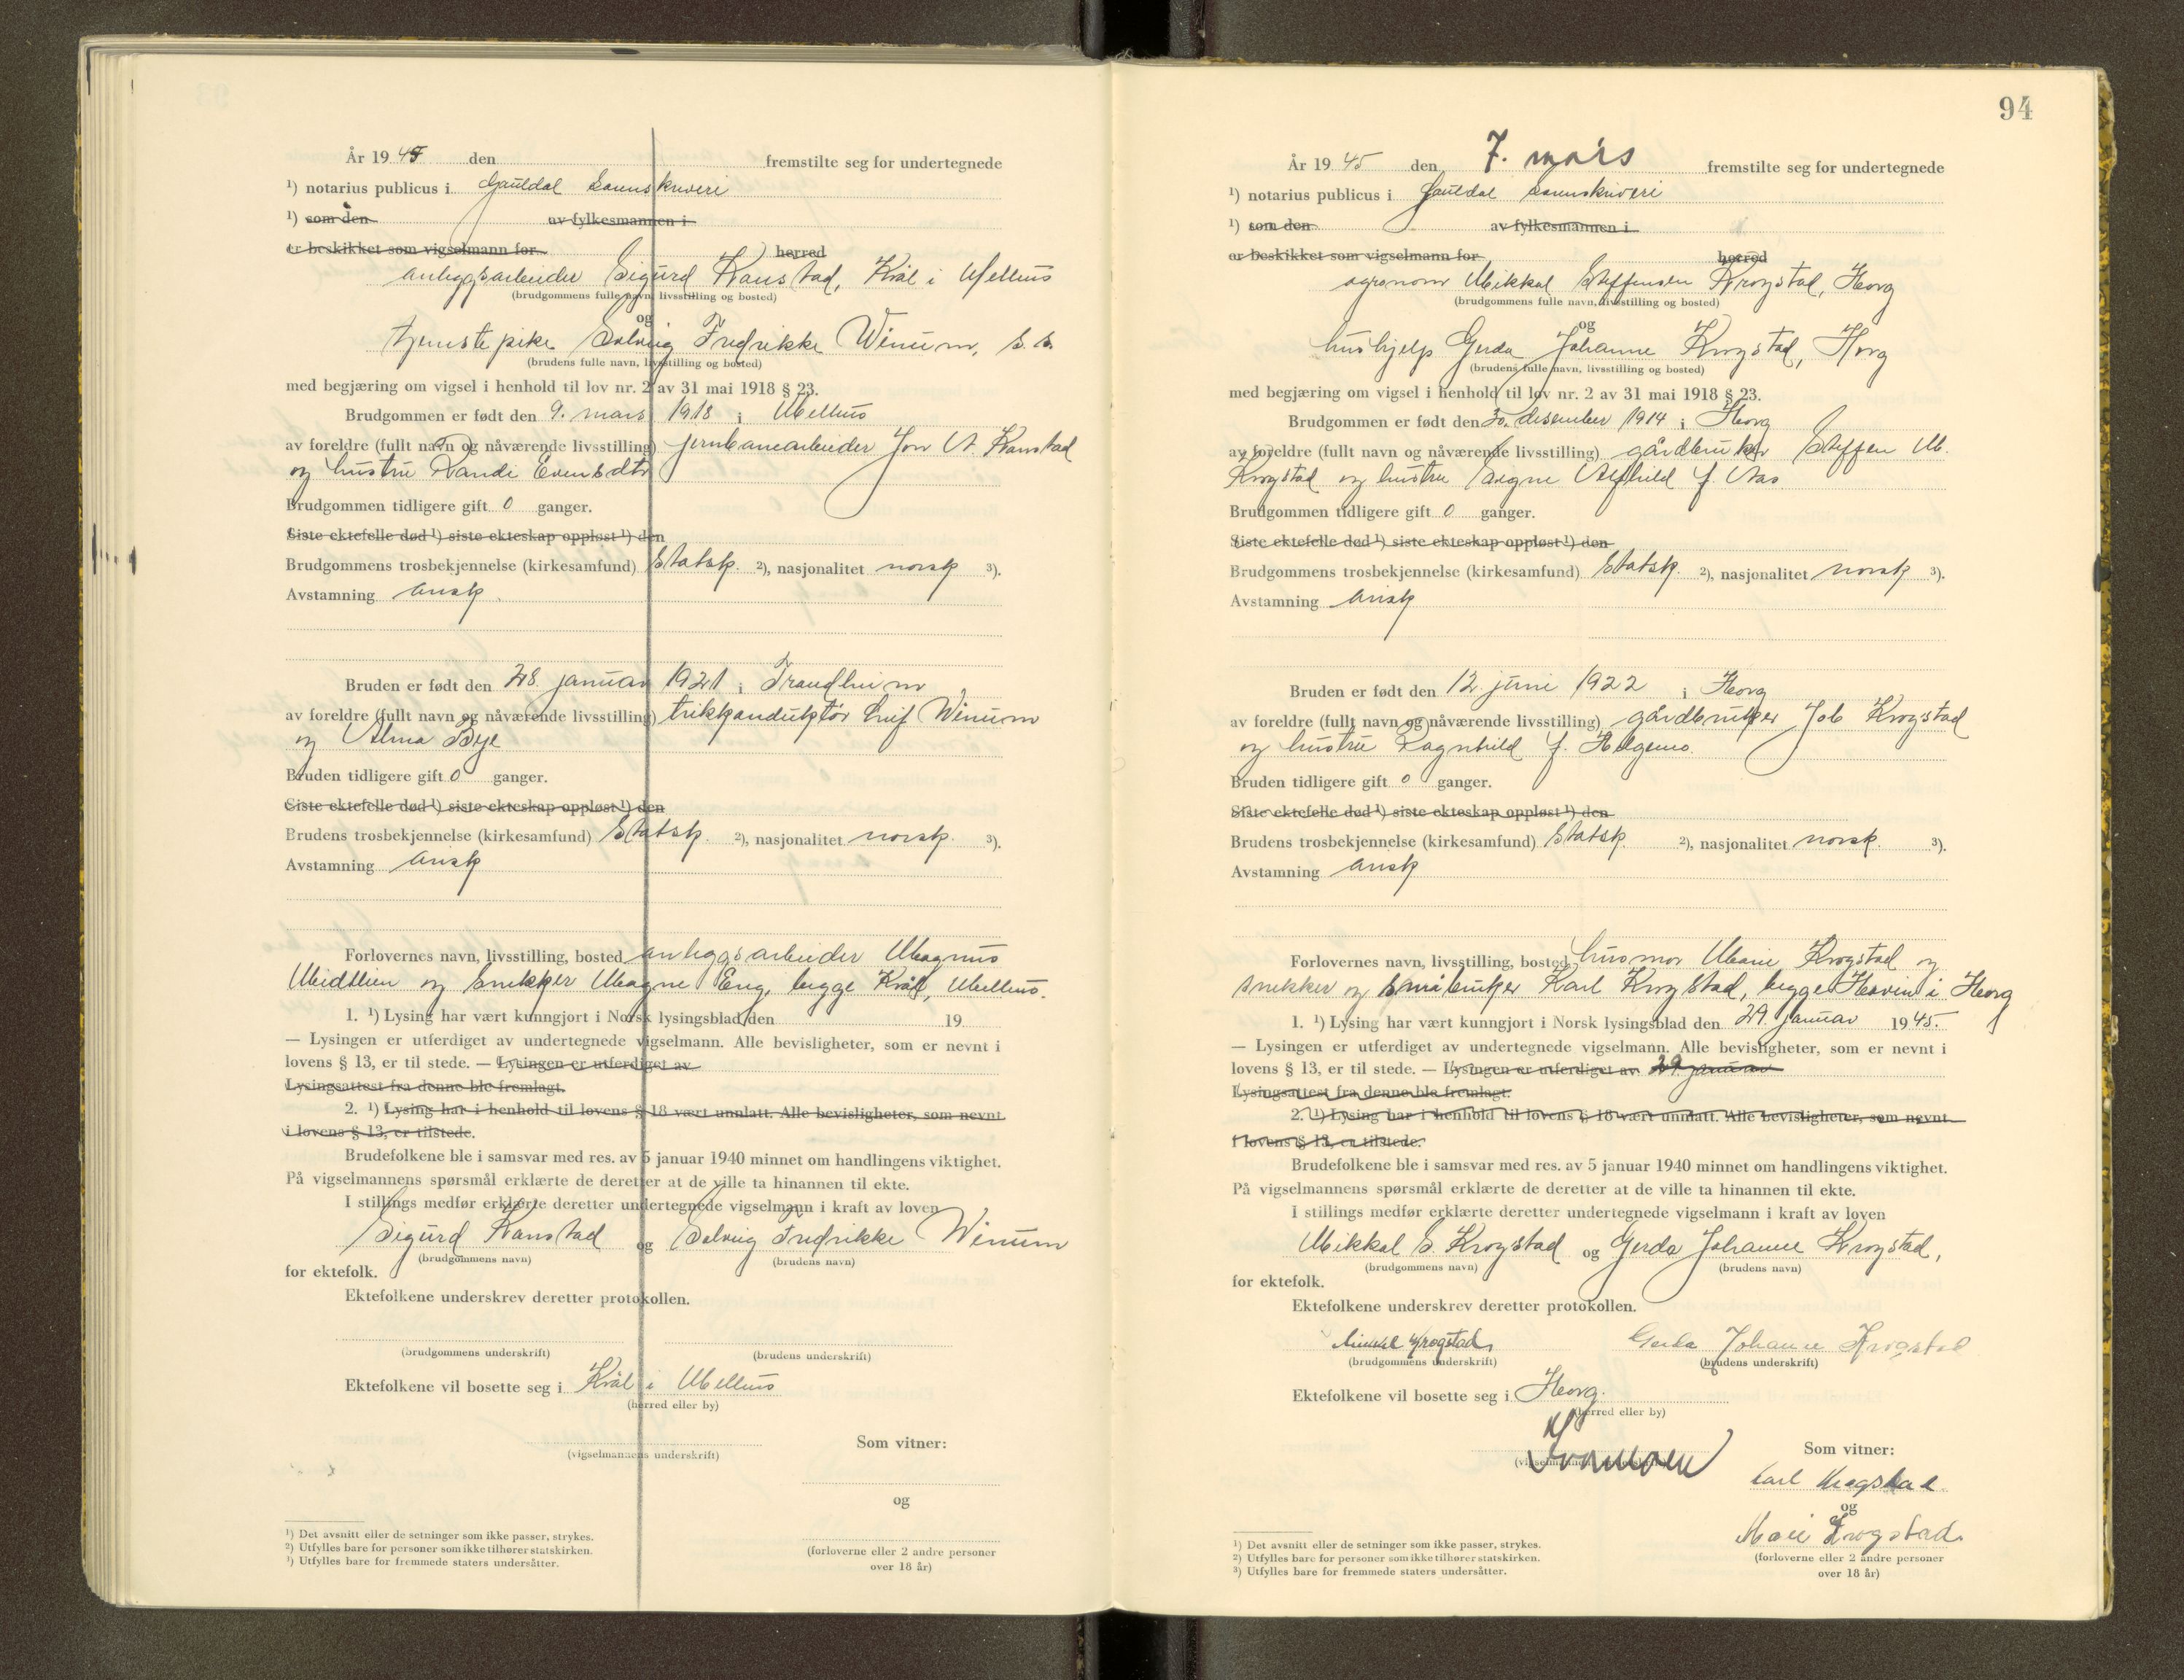 År 1945 den fremstilte seg for undertegnede
1) notarius publicus i Gauldal sorenskriveri
1) som den av fylkesmannen i
er beskikket som vigselmann for herred
anleggsarbeider Sigurd Kanstad, Kvål i Melhus
(brudgommens fulle navn, livsstilling og bosted)
og
tjenstepike Solveig Fredrikke Winum, s. s.
(brudens fulle navn, livsstilling og bosted)
med begjæring om vigsel i henhold til lov nr. 2 av 31 mai 1918 § 23.
Brudgommen er født den 9. mars 1918 i Melhus
av foreldre (fullt navn og nåværende livsstilling) jernbanearbeider Jon A. Kanstad
og hustru Randi Evensdtr
Brudgommen tidligere gift 0 ganger.
Siste ektefelle død 1) siste ekteskap oppløst 1) den
Brudgommens trosbekjennelse (kirkesamfund) Statsk. 2), nasjonalitet norsk 3).
Avstamning arisk
Bruden er født den 28. januar 1921 i Trondheim
av foreldre (fullt navn og nåværende livsstilling) trikkonduktør Leif Winum
og Alma Bye
Bruden tidligere gift 0 ganger.
Siste ektefelle død 1) siste ekteskap oppløst 1) den
Brudens trosbekjennelse (kirkesamfund) Statsk. 2), nasjonalitet norsk. 3).
Avstamning arisk
Forlovernes navn, livsstilling, bosted anleggsarbeider Magnus
Midtlien og snekker Magne Eng, begge Kvål, Melhus.
1. 1) Lysing har vært kunngjort i Norsk lysingsblad den 19
— Lysingen er utferdiget av undertegnede vigselmann. Alle bevisligheter, som er nevnt i
lovens § 13, er til stede. — Lysingen er utferdiget av
Lysingsattest fra denne ble fremlagt.
2. 1) Lysing har i henhold til lovens § 18 vært unnlatt. Alle bevisligheter, som nevnt
i lovens § 13, er tilstede.
Brudefolkene ble i samsvar med res. av 5 januar 1940 minnet om handlingens viktighet.
På vigselmannens spørsmål erklærte de deretter at de ville ta hinannen til ekte.
I stillings medfør erklærte deretter undertegnede vigselmann i kraft av loven
Sigurd Kanstad og Solveig Fredrikke Winum
(brudgommens navn) (brudens navn)
for ektefolk.
Ektefolkene underskrev deretter protokollen.
(brudgommens underskrift) (brudens underskrift)
Ektefolkene vil bosette seg i Kvål i Melhus
(herred eller by)
(vigselmannens underskrift)
Som vitner:
og
(forloverne eller 2 andre personer
over 18 år)
1) Det avsnitt eller de setninger som ikke passer, strykes.
2) Utfylles bare for personer som ikke tilhører statskirken.
3) Utfylles bare for fremmede staters undersåtter.
94
År 1945 den 7. mars fremstilte seg for undertegnede
1) notarius publicus i Gauldal sorenskriveri
1) som den av fylkesmannen i
er beskikket som vigselmann for herred
agronom Mikkal Steffensen Krogstad, Horg
(brudgommens fulle navn, livsstilling og bosted)
og
hushjelp Gerda Johanne Krogstad, Horg
(brudens fulle navn, livsstilling og bosted)
med begjæring om vigsel i henhold til lov nr. 2 av 31 mai 1918 § 23.
Brudgommen er født den 30. desember 1914 i Horg
av foreldre (fullt navn og nåværende livsstilling) gårdbruker Steffen M.
Krogstad og hustru Signe Alfhild f. Aas
Brudgommen tidligere gift 0 ganger.
Siste ektefelle død 1) siste ekteskap oppløst 1) den
Brudgommens trosbekjennelse (kirkesamfund) Statsk. 2), nasjonalitet norsk 3).
Avstamning arisk
Bruden er født den 12. juni 1922 i Horg
av foreldre (fullt navn og nåværende livsstilling) gårdbruker Job Krogstad
og hustru Ragnhild f. Helgemo.
Bruden tidligere gift 0 ganger.
Siste ektefelle død 1) siste ekteskap oppløst 1) den
Brudens trosbekjennelse (kirkesamfund) Statsk. 2), nasjonalitet norsk. 3).
Avstamning arisk
Forlovernes navn, livsstilling, bosted husmor Marie Krogstad og
snekker og småbruker Karl Krogstad, begge Hovin i Horg
1. 1) Lysing har vært kunngjort i Norsk lysingsblad den 29. januar 1945.
— Lysingen er utferdiget av undertegnede vigselmann. Alle bevisligheter, som er nevnt i
lovens § 13, er til stede. — Lysingen er utferdiget av 29. januar
Lysingsattest fra denne ble fremlagt.
2. 1) Lysing har i henhold til lovens § 18 vært unnlatt. Alle bevisligheter, som nevnt
i lovens § 13, er tilstede.
Brudefolkene ble i samsvar med res. av 5 januar 1940 minnet om handlingens viktighet.
På vigselmannens spørsmål erklærte de deretter at de ville ta hinannen til ekte.
I stillings medfør erklærte deretter undertegnede vigselmann i kraft av loven
Mikkal S. Krogstad og Gerda Johanne Krogstad,
(brudgommens navn) (brudens navn)
for ektefolk.
Ektefolkene underskrev deretter protokollen.
Mikkal Krogstad Gerda Johanne Krogstad
(brudgommens underskrift) (brudens underskrift)
Ektefolkene vil bosette seg i Horg.
(herred eller by)
(vigselmannens underskrift)
Som vitner:
Karl Krogstad
og
Marie Krogstad
(forloverne eller 2 andre personer
over 18 år)
1) Det avsnitt eller de setninger som ikke passer, strykes.
2) Utfylles bare for personer som ikke tilhører statskirken.
3) Utfylles bare for fremmede staters undersåtter.